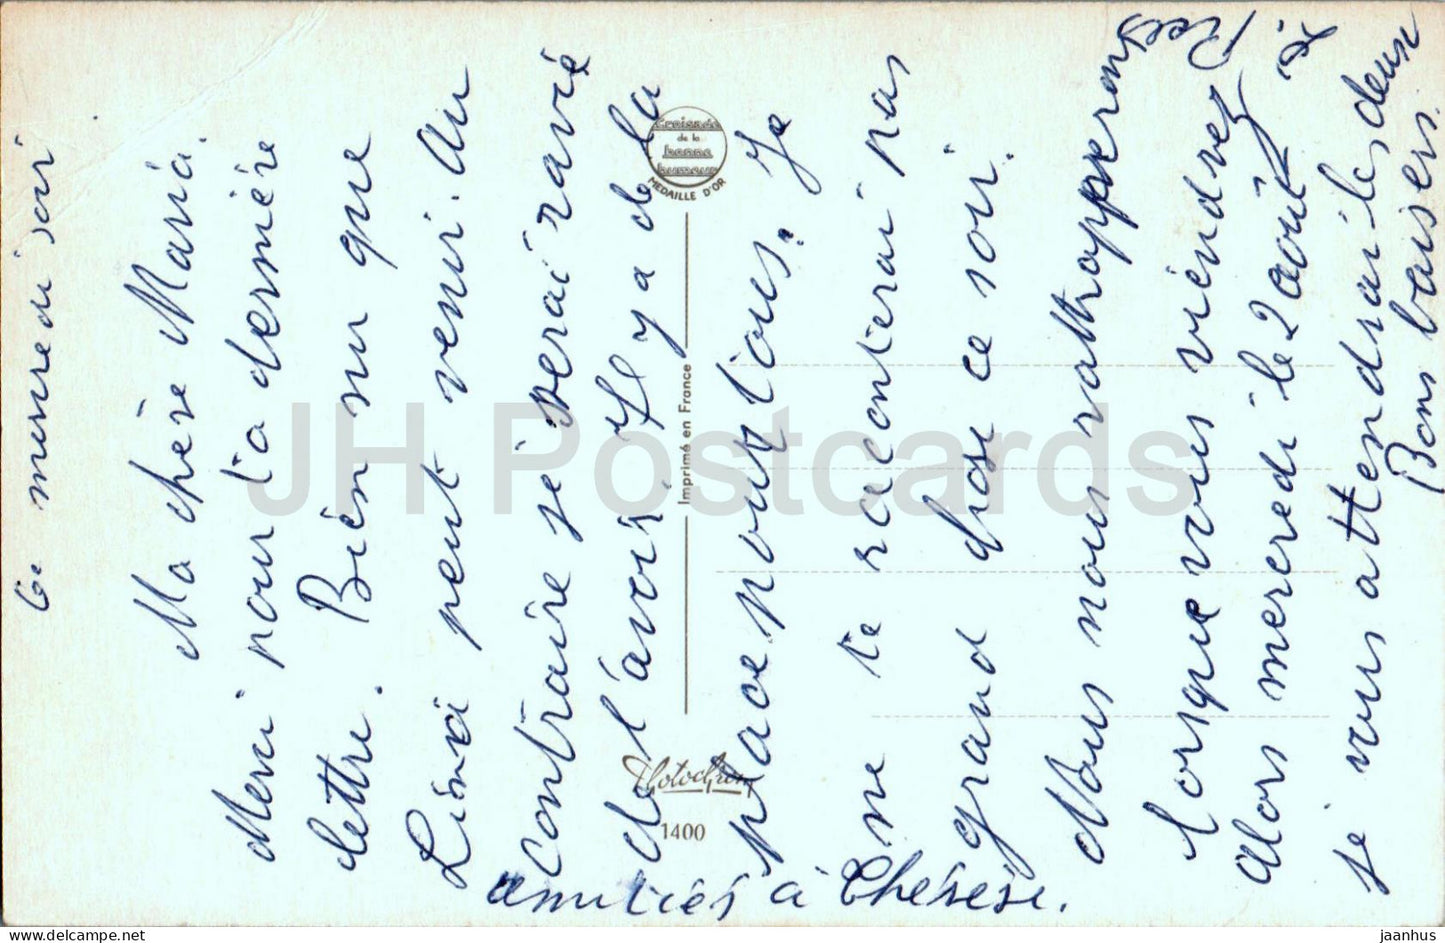 Ce mercredi soir
Ma chère Maria.
Merci pour ta dernière
lettre. Bien sûr que
peut venir. Au
contraire je serai ravie
de l'avoir. Il y a de la
place pour tous. Je
ne te raconterai pas
grand chose ce soir.
Nous nous rattropperons
lorsque vous viendrez
Alors mercredi le 2 août
je vous attendrai les deux
Bons baisers.
amitiés à Thérèse.
Croisade
de la
bonne
humeur
MEDAILLE D'OR
Imprimé en France
Photochrom
1400
JH Postcards
www.delcampe.net
jaanhus